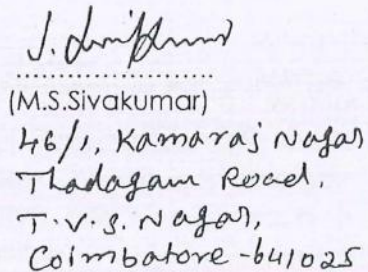 (M.S.Sivakumar)
46/1, Kamaraj Nagar
Thadagam Road,
T.V.S. Nagar,
Coimbatore-641025